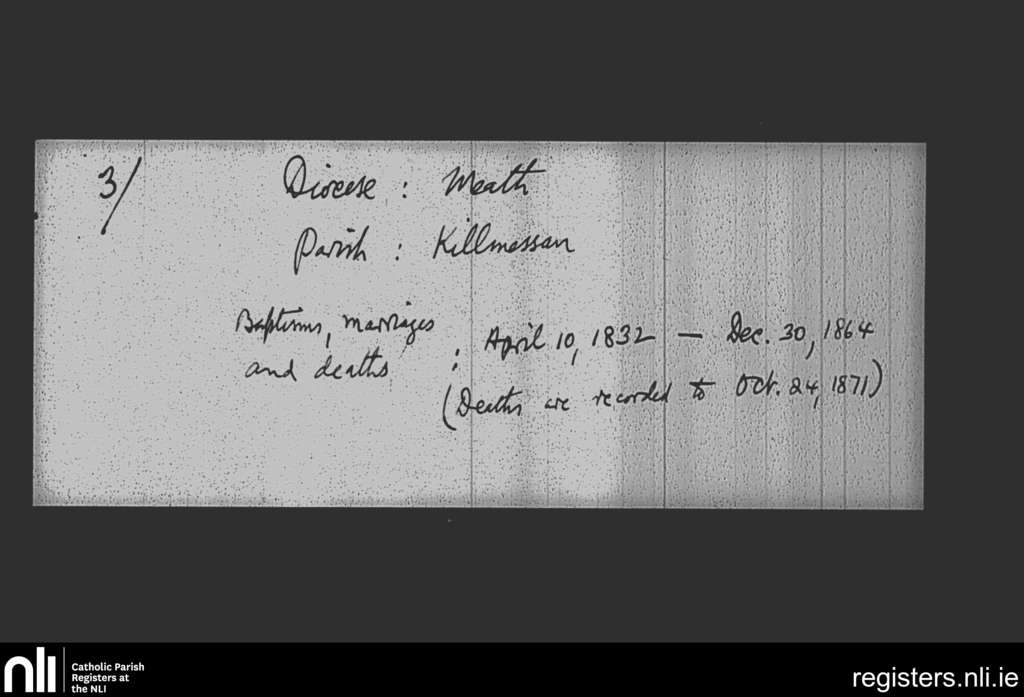 3/
Diocese : Meath
Parish : Killmessan
Baptisms, marriages
and deaths : April 10, 1832 — Dec. 30, 1864
(Deaths are recorded to Oct. 24, 1871)
nli
Catholic Parish
Registers at
the NLI
registers.nli.ie